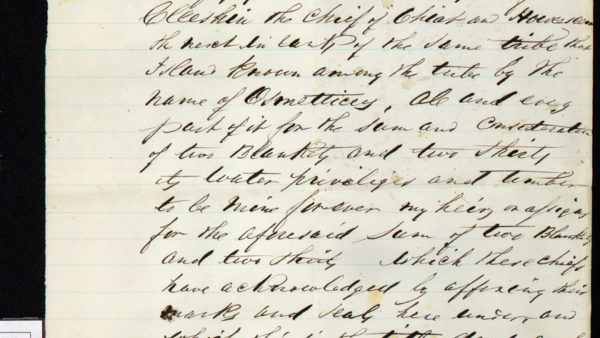 the chief of Chiat an
the next in carty of the same tribe that
Island known among the tribe by the
name of , All and every
part of it for the sum and Consideration
of two Blankets and two Shirts
its Water privileges and timber
to be mine forever my heirs or assigns
for the aforesaid Sum of two Blankets
and two Shirts which these chiefs
have acknowledged by affixing their
marks and seals here under, and